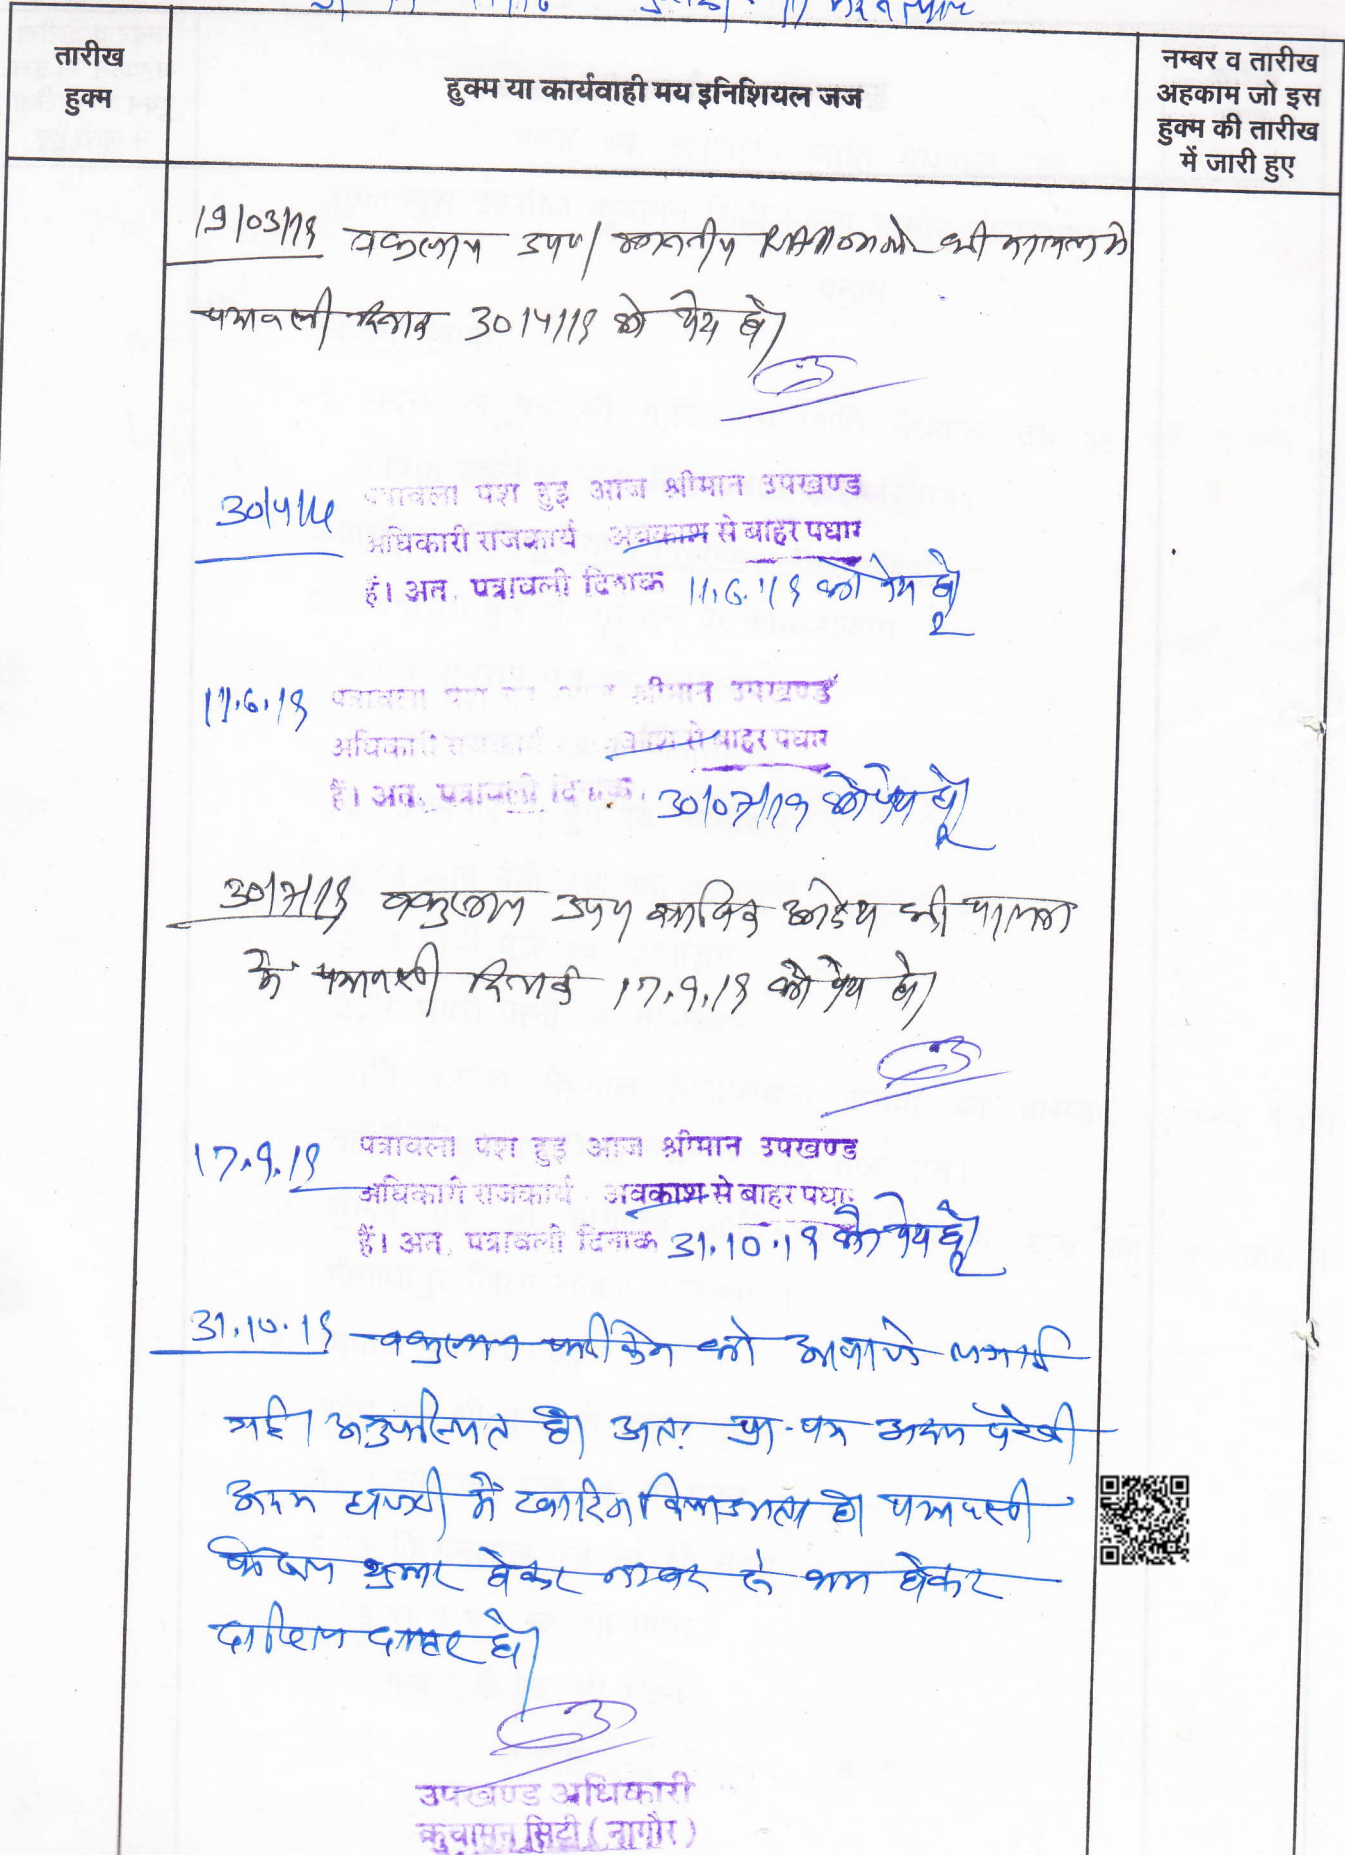 तारीख
हुक्म
हुक्म या कार्यवाही मय इनिशियल जज
नम्बर व तारीख
अहकाम जो इस
हुक्म की तारीख
में जारी हुए
19/03/18 वकुलाय उपप।
पत्रावली दिनांक 30/4/18 को पेश हो।
30/4/18 पत्रावली पेश हुई आज श्रीमान उपखण्ड
अधिकारी राजकार्य अवकाश से बाहर पधारे
हैं। अत, पत्रावली दिनांक 11.6.18 को पेश हो
11.6.18 पत्रावली पेश हुई आज श्रीमान उपखण्ड
अधिकारी राजकार्य अवकाश से बाहर पधारे
हैं। अत, पत्रावली दिनांक 30/07/18 को पेश हो
30/7/18 वकुलाय उपप
में पत्रावली दिनांक 17.9.18 को पेश हो।
17.9.18 पत्रावली पेश हुई आज श्रीमान उपखण्ड
अधिकारी राजकार्य अवकाश से बाहर पधारे
हैं। अत, पत्रावली दिनांक 31.10.18 को पेश हो
31.10.18 को आवाजे लगाई
गई। अनुपस्थित है। अतः प्रा-पत्र अदम पैरवी
अदम हाजरी में खारिज किया जाता है। पत्रावली
फैसल शुमार होकर नम्बर से कम होकर
दाखिल दफ्तर हो।
उपखण्ड अधिकारी
कुचामन सिटी (नागौर)